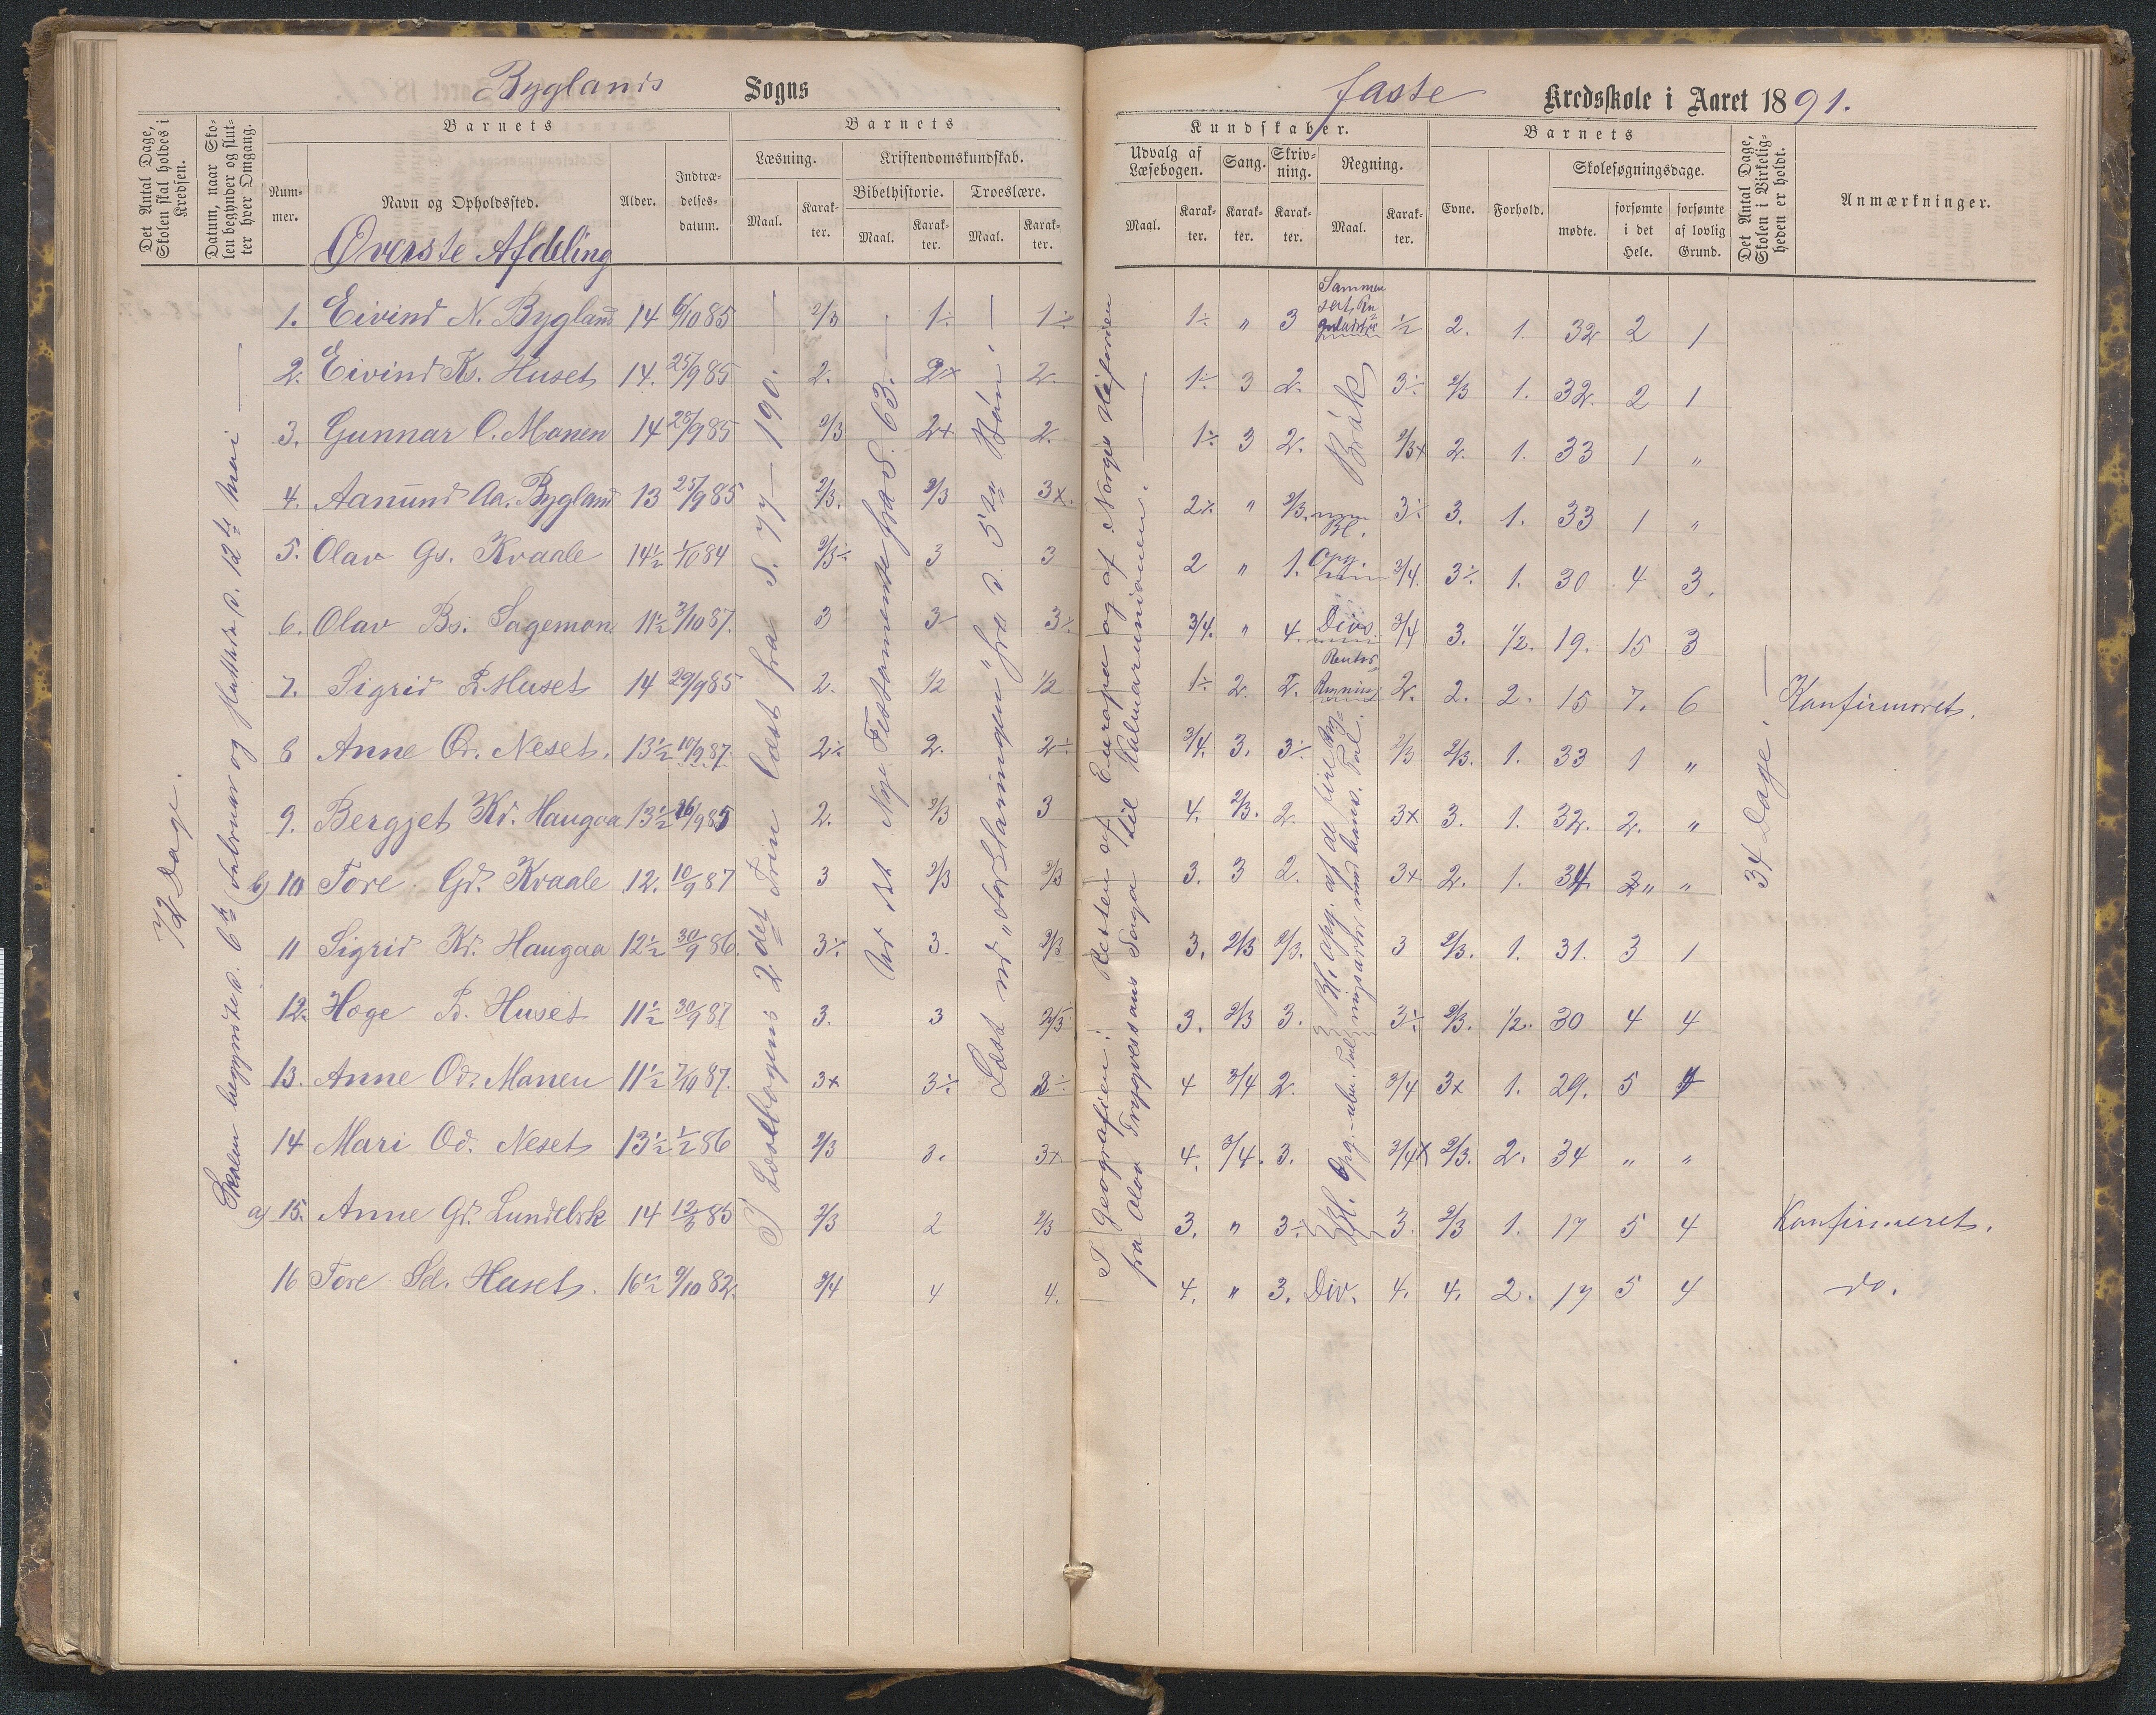 Byglands Sogns
faste Kredsskole i Aaret 1891.
Det Antal Dage, Skolen skal holdes i Kredsen.
Datum, naar Skolen begynder og slutter hver Omgang.
Barnets
Nummer.
Navn og Opholdssted.
Alder.
Indtrædelsesdatum.
Barnets
Læsning.
Maal.
Karakter.
Kristendomskundskab.
Bibelhistorie.
Maal.
Karakter.
Troeslære.
Maal.
Karakter.
Kundskaber.
Udvalg af Læsebogen.
Maal.
Karakter.
Sang.
Karakter.
Skrivning.
Karakter.
Regning.
Maal.
Karakter.
Barnets
Evne.
Forhold.
Skolesøgningsdage.
mødte.
forsømte i det Hele.
forsømte af lovlig Grund.
Det Antal Dage, Skolen i Virkeligheden er holdt.
Anmærkninger.
Øverste Afdeling
72 Dage.
Skolen begyndte d. 6te februar og sluttede d. 12te mai —
I Læsebogens 2det Trin læst fra S. 77 – 190. —
det Nye Testamente fra S. 63. —
Læst ud „Forklaringen“ fra d. 5te Bøn
I Geografien: Resten af Europa og af Norges Historien
fra Olav Trygvessøns Saga til Kalmarunionen. —
34 Dage. —
1. Eivind N. Bygland 14 6/10 85 2/3 1÷ 1÷ 1÷ " 3 1/2 2. 1. 32 2 1
2. Eivind Ks. Huset 14. 25/9 85 2. 2+ 2. 1÷ 3 2. Brøk 3÷ 2/3 1. 32. 2 1
3. Gunnar O. Monen 14 25/9 85 2/3 2+ 2. 1÷ 3 2. 2/3+ 2. 1. 33 1 "
4. Aanund Aa. Bygland 13 25/9 85 2/3. 2/3 3+. 2÷ " 2/3. Bl. 3÷ 3. 1. 33 1 "
5. Olav Gs. Kvaale 14½ 1/10 84 2/3÷ 3 3 2 " 1. Opg. 3/4. 3÷ 1. 30 4 3.
6. Olav Bs. Sagemon 11½ 3/10 87. 3 3÷ 3÷ 3/4. " 4. Divs. 3/4 3. 1/2. 19. 15 3
7. Sigrid B. Huset 14 29/9 85 2. 1/2 1/2 1÷ 2. 2. 2. 2. 2. 15 7. 6 Konfirmeret.
8 Anne Od. Neset. 13½ 10/9 87. 2÷ 2. 2÷ 3/4. 3. 3÷ 2/3 2/3. 1. 33 1 "
9. Bergjet Kd. Haugaa 13½ 26/9 85 2. 2/3 3 4. 2/3. 2. 3+ 3. 1. 32. 2. "
b) 10 Tore Gd. Kvaale 12. 10/9 87 3 2/3 2/3 3. 3 2. 3+ 2. 1. 34. " "
11 Sigrid Kd. Haugaa 12½ 30/9 86. 3÷ 3. 2/3 3. 2/3 2/3. 3 2/3. 1. 31. 3 1
12. Hæge B. Huset 11½ 30/9 87 3. 3 2/3 3. 2/3 3. 3÷ 2/3. 1/2. 30 4 4
13. Anne Od. Monen 11½ 7/10 87. 3+ 3÷ 3÷ 4 3/4 2. 3/4 3+ 1. 29. 5 4
14 Mari Od. Neset 13½ 1/2 86 2/3 3. 3+ 4. 3/4. 3. 3/4+ 2/3. 2. 34 " "
a) 15. Anne Gd. Lundebrk 14 12/3 85 2/3 2 2/3 3. " 3÷ 3. 2/3 1. 17 5 4 Konfirmeret.
16 Tore Sd. Huset. 16½ 9/10 82. 3/4 4 4. 4. " 3. Div. 4. 4. 2. 17 5 4 do.